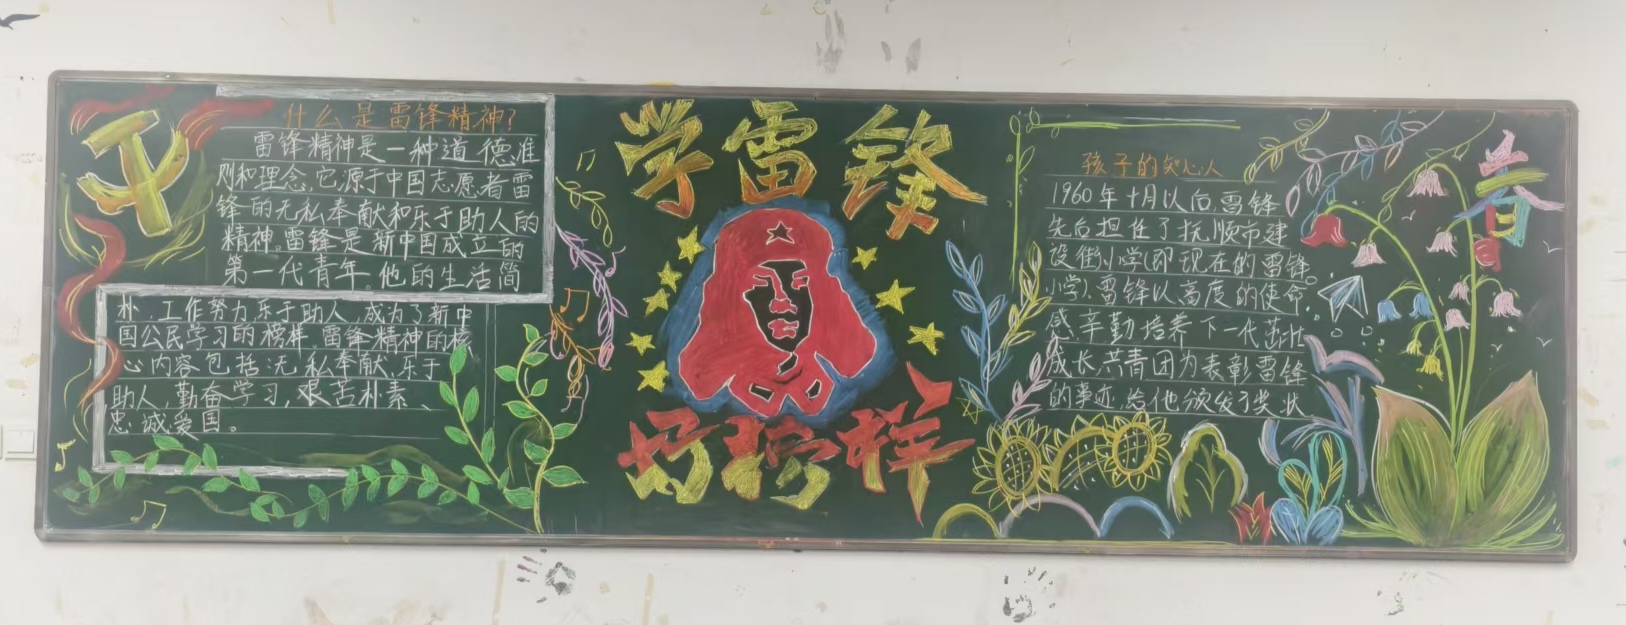 什么是雷锋精神？
雷锋精神是一种道德准
则和理念，它源于中国志愿者雷
锋的无私奉献和乐于助人的
精神。雷锋是新中国成立的
第一代青年。他的生活简
朴，工作努力，乐于助人，成为了新中
国公民学习的榜样，雷锋精神的核
心内容包括：无私奉献，乐于
助人，勤奋学习，艰苦朴素、
忠诚爱国。
学雷锋
好榜样
孩子的知心人
1960年十月以后，雷锋
先后担任了抚顺市建
设街小学（即现在的雷锋
小学），雷锋以高度的使命
感辛勤培养下一代茁壮
成长共青团为表彰雷锋
的事迹，给他颁发了奖状
春